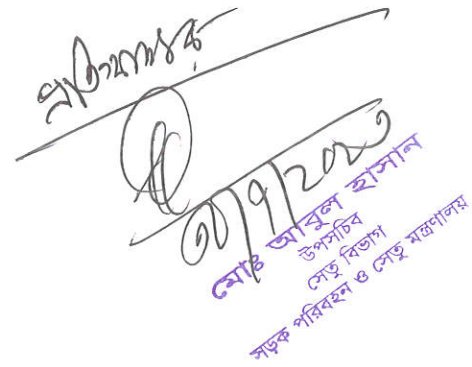 প্রতিস্বাক্ষরিত
মোঃ আবুল হাসান
উপসচিব
সেতু বিভাগ
সড়ক পরিবহন ও সেতু মন্ত্রণালয়